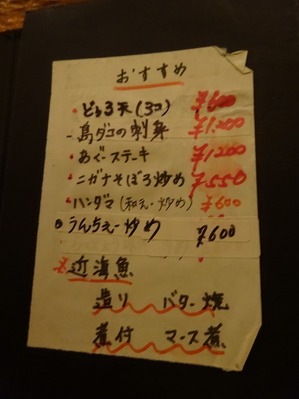 おすすめ
どぅる天(3コ) ¥600
島ダコの刺身 ¥1.200
あぐーステーキ ¥1200
ニガナそぼろ炒め ¥550
ハンダマ(和え・炒め) ¥600
うんちぇー炒め ¥600
近海魚
造り バター焼
煮付 マース煮